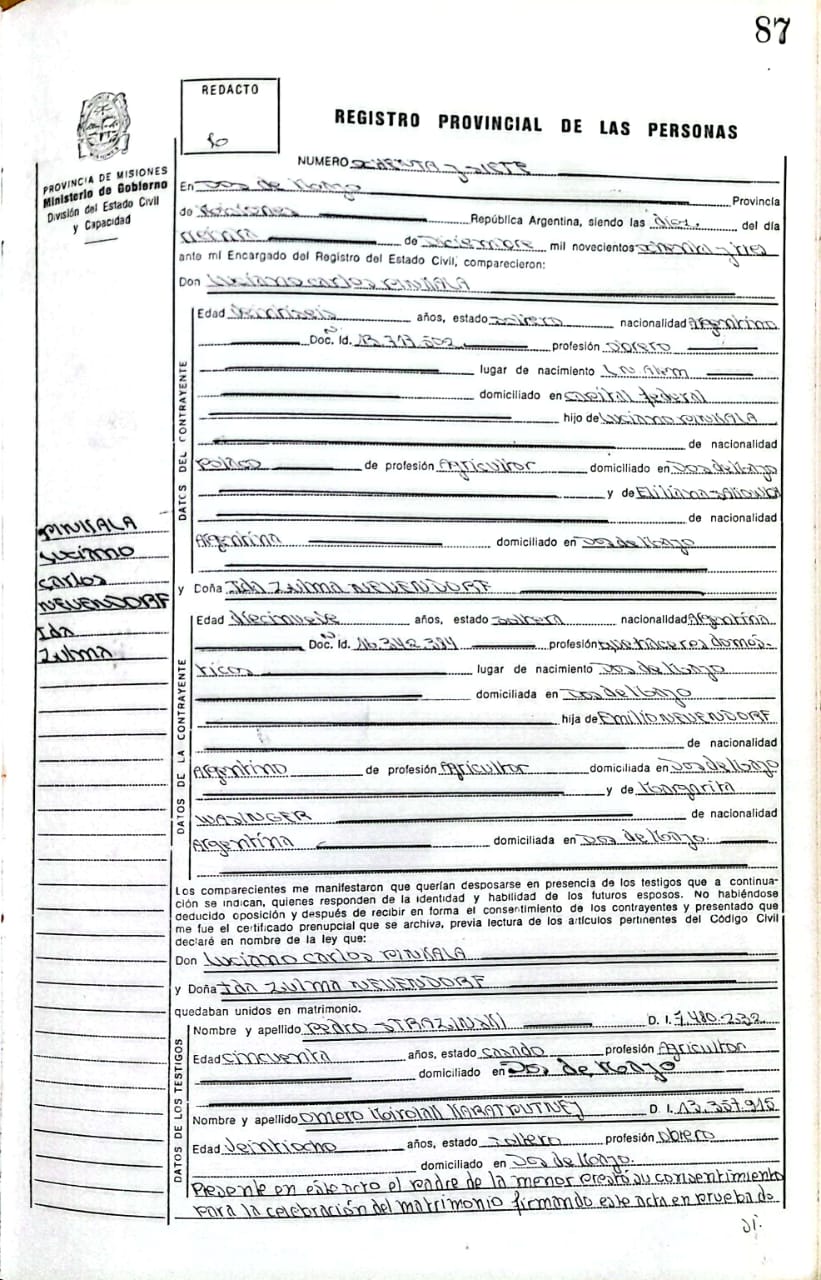 87
REDACTO
REGISTRO PROVINCIAL DE LAS PERSONAS
PROVINCIA DE MISIONES
Ministerio de Gobierno
División del Estado Civil
y Capacidad
NUMERO ochenta y siete
En Dos de Mayo Provincia
de Misiones República Argentina, siendo las diez. del día
de Diciembre mil novecientos ochenta y tres
ante mí Encargado del Registro del Estado Civil, comparecieron:
Don Luciano Carlos PINKALA
DATOS DEL CONTRAYENTE
Edad veintiseis años, estado soltero nacionalidad Argentino
Doc. Id. profesión obrero
lugar de nacimiento L.N. Alem
domiciliado en Capital Federal
hijo de Luciano PINKALA
de nacionalidad
Polaco de profesión Agricultor domiciliado en Dos de Mayo
y de
de nacionalidad
Argentina domiciliado en Dos de Mayo
PINKALA
Luciano
Carlos
NEUENDORF
Ida
Zulma
y Doña Ida Zulma NEUENDORF
DATOS DE LA CONTRAYENTE
Edad diecinueve años, estado soltera nacionalidad Argentina
Doc. Id. 16.342.384 profesión quehaceres domes-
ticos lugar de nacimiento Dos de Mayo
domiciliada en Dos de Mayo
hija de Emilio NEUENDORF
de nacionalidad
Argentino de profesión Agricultor domiciliada en Dos de Mayo
y de Margarita
WASINGER de nacionalidad
Argentina domiciliada en Dos de Mayo.
Los comparecientes me manifestaron que querían desposarse en presencia de los testigos que a continua-
ción se indican, quienes responden de la identidad y habilidad de los futuros esposos. No habiéndose
deducido oposición y después de recibir en forma el consentimiento de los contrayentes y presentado que
me fue el certificado prenupcial que se archiva, previa lectura de los artículos pertinentes del Código Civil
declaré en nombre de la ley que:
Don Luciano Carlos PINKALA
y Doña Ida Zulma NEUENDORF
quedaban unidos en matrimonio.
DATOS DE LOS TESTIGOS
Nombre y apellido Pedro D. I. 7.480.232
Edad cincuenta años, estado casado profesión Agricultor
domiciliado en Dos de Mayo
Nombre y apellido Omero D. I. 13.357.915
Edad Veintiocho años, estado soltero profesión obrero
domiciliado en Dos de Mayo.
Presente en este acto el padre de la menor prestó su consentimiento
para la celebración del matrimonio firmando este acta en prueba de